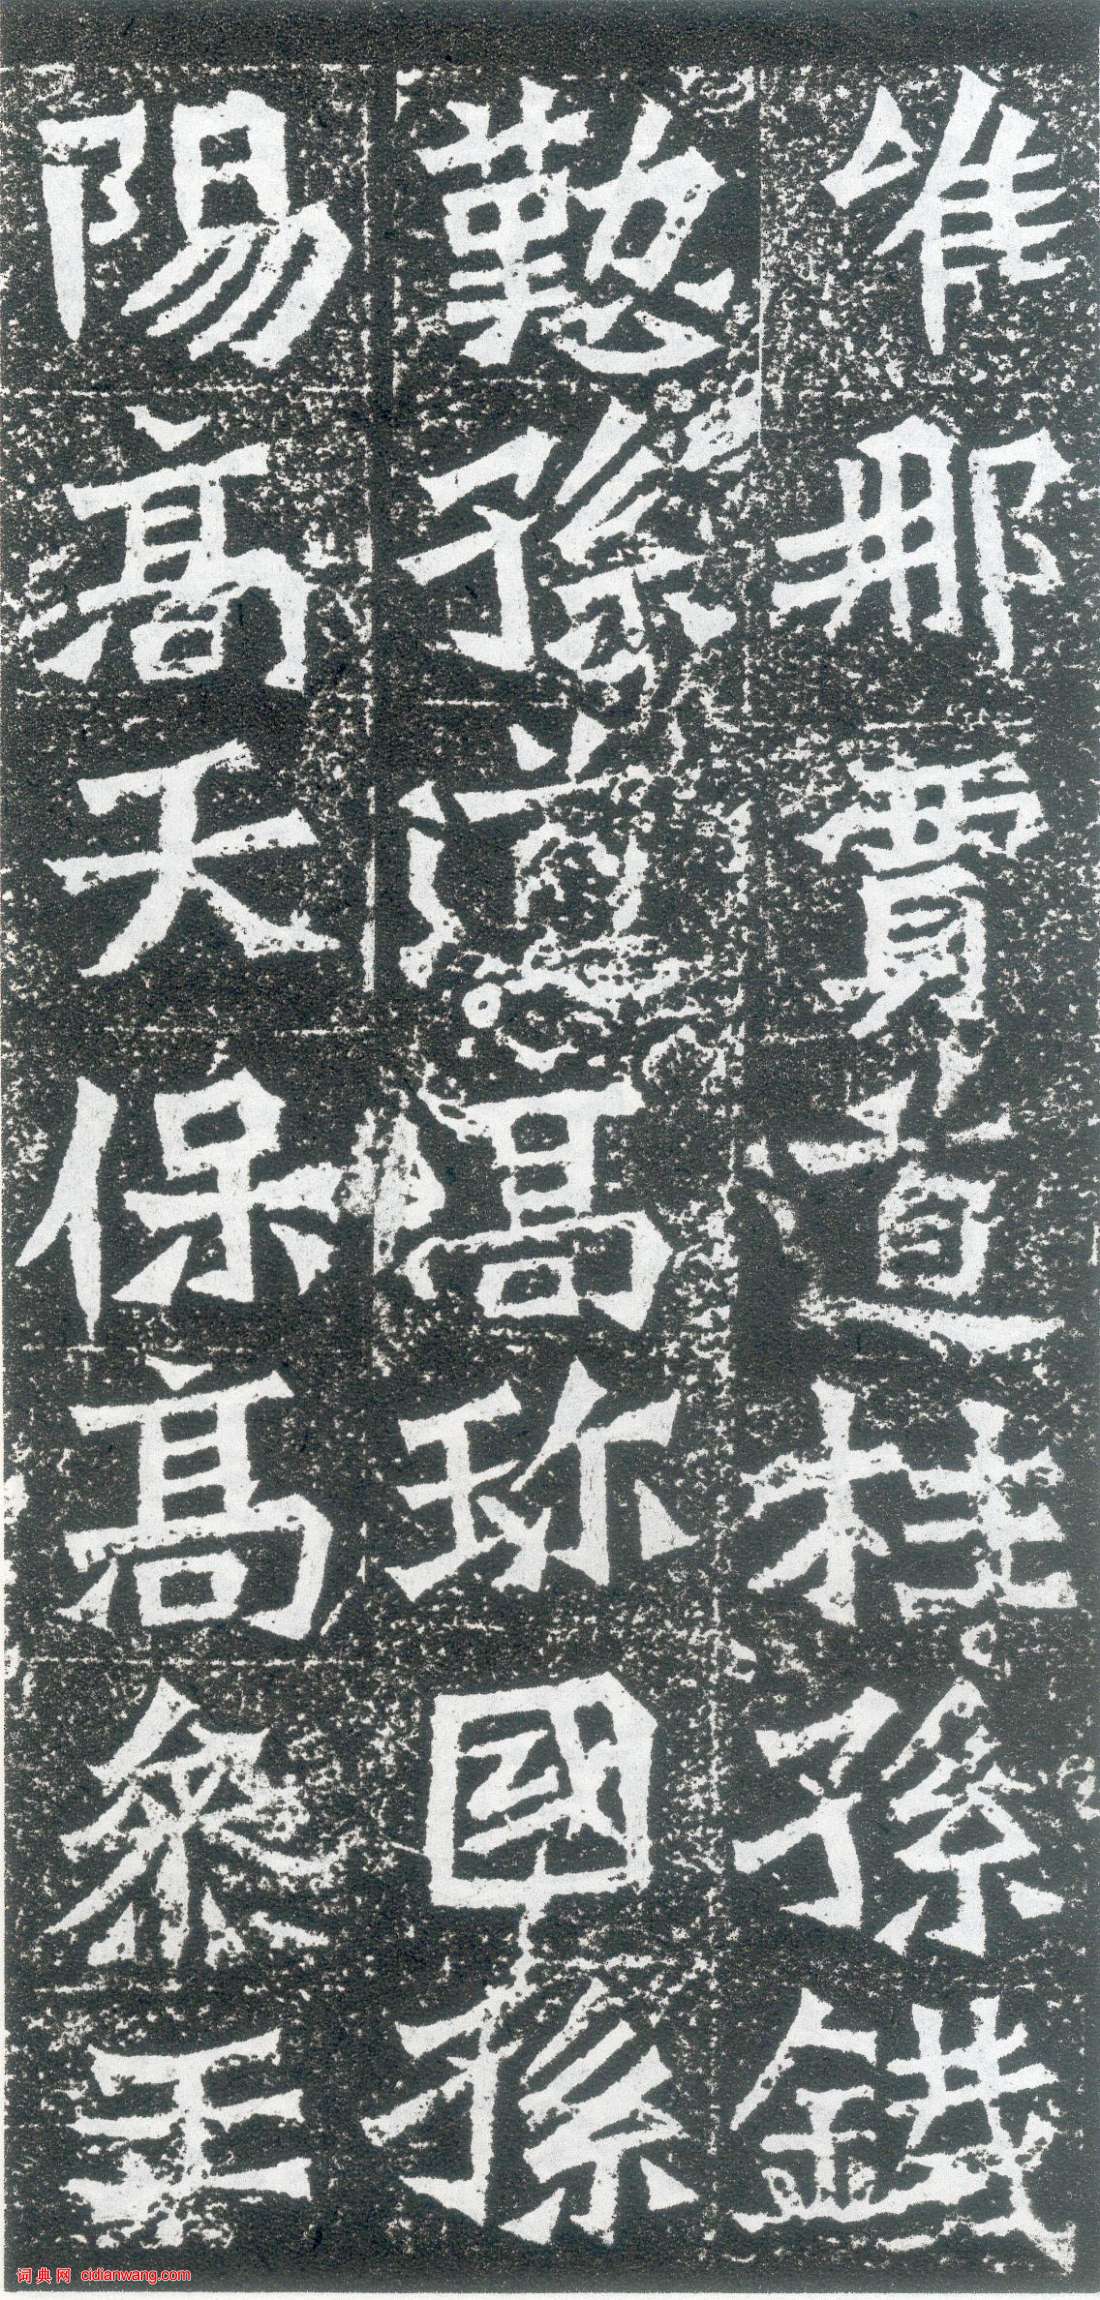 唯那賈道柱孫鐵
懃孫高珎國孫
陽高天保高王
词典网 cidianwang.com